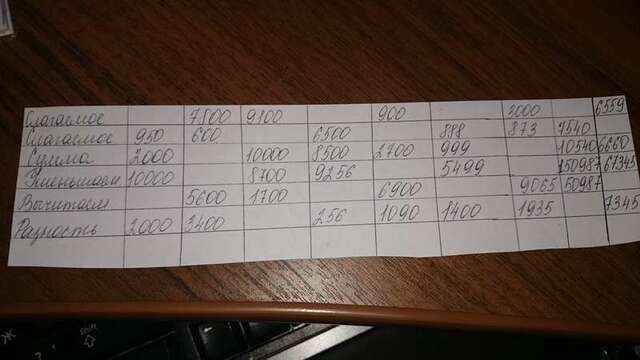 Слагаемое 7800 9100 900 2000 6559
Слагаемое 950 600 6500 888 873 7540
Сумма 2000 10000 8500 2700 999 10540 6660
Уменьшаем 10000 8700 9256 5499 150987 67345
Вычитаем 5600 1700 6900 9065 50987
Разность 2000 3400 256 1090 1400 1935 7345
Ж
Shift